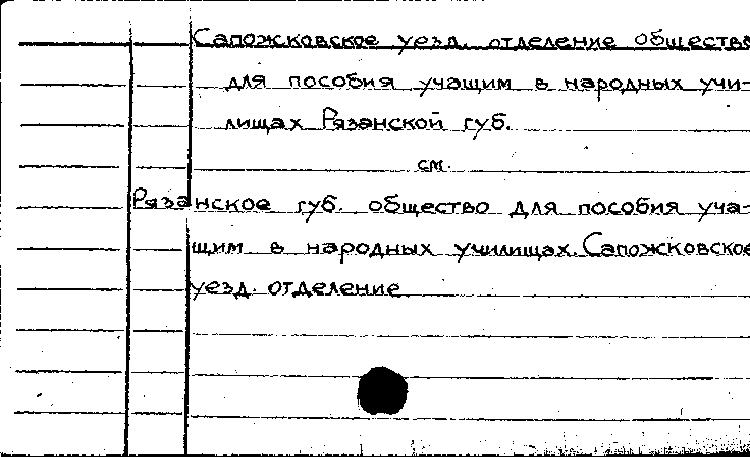 Сапожковское уезд. отделение общество
для пособия учащим в народных учи-
лищах Рязанской губ.
см.
Рязанское губ. общество для пособия уча-
щим в народных училищах. Сапожковское
уезд. отделение